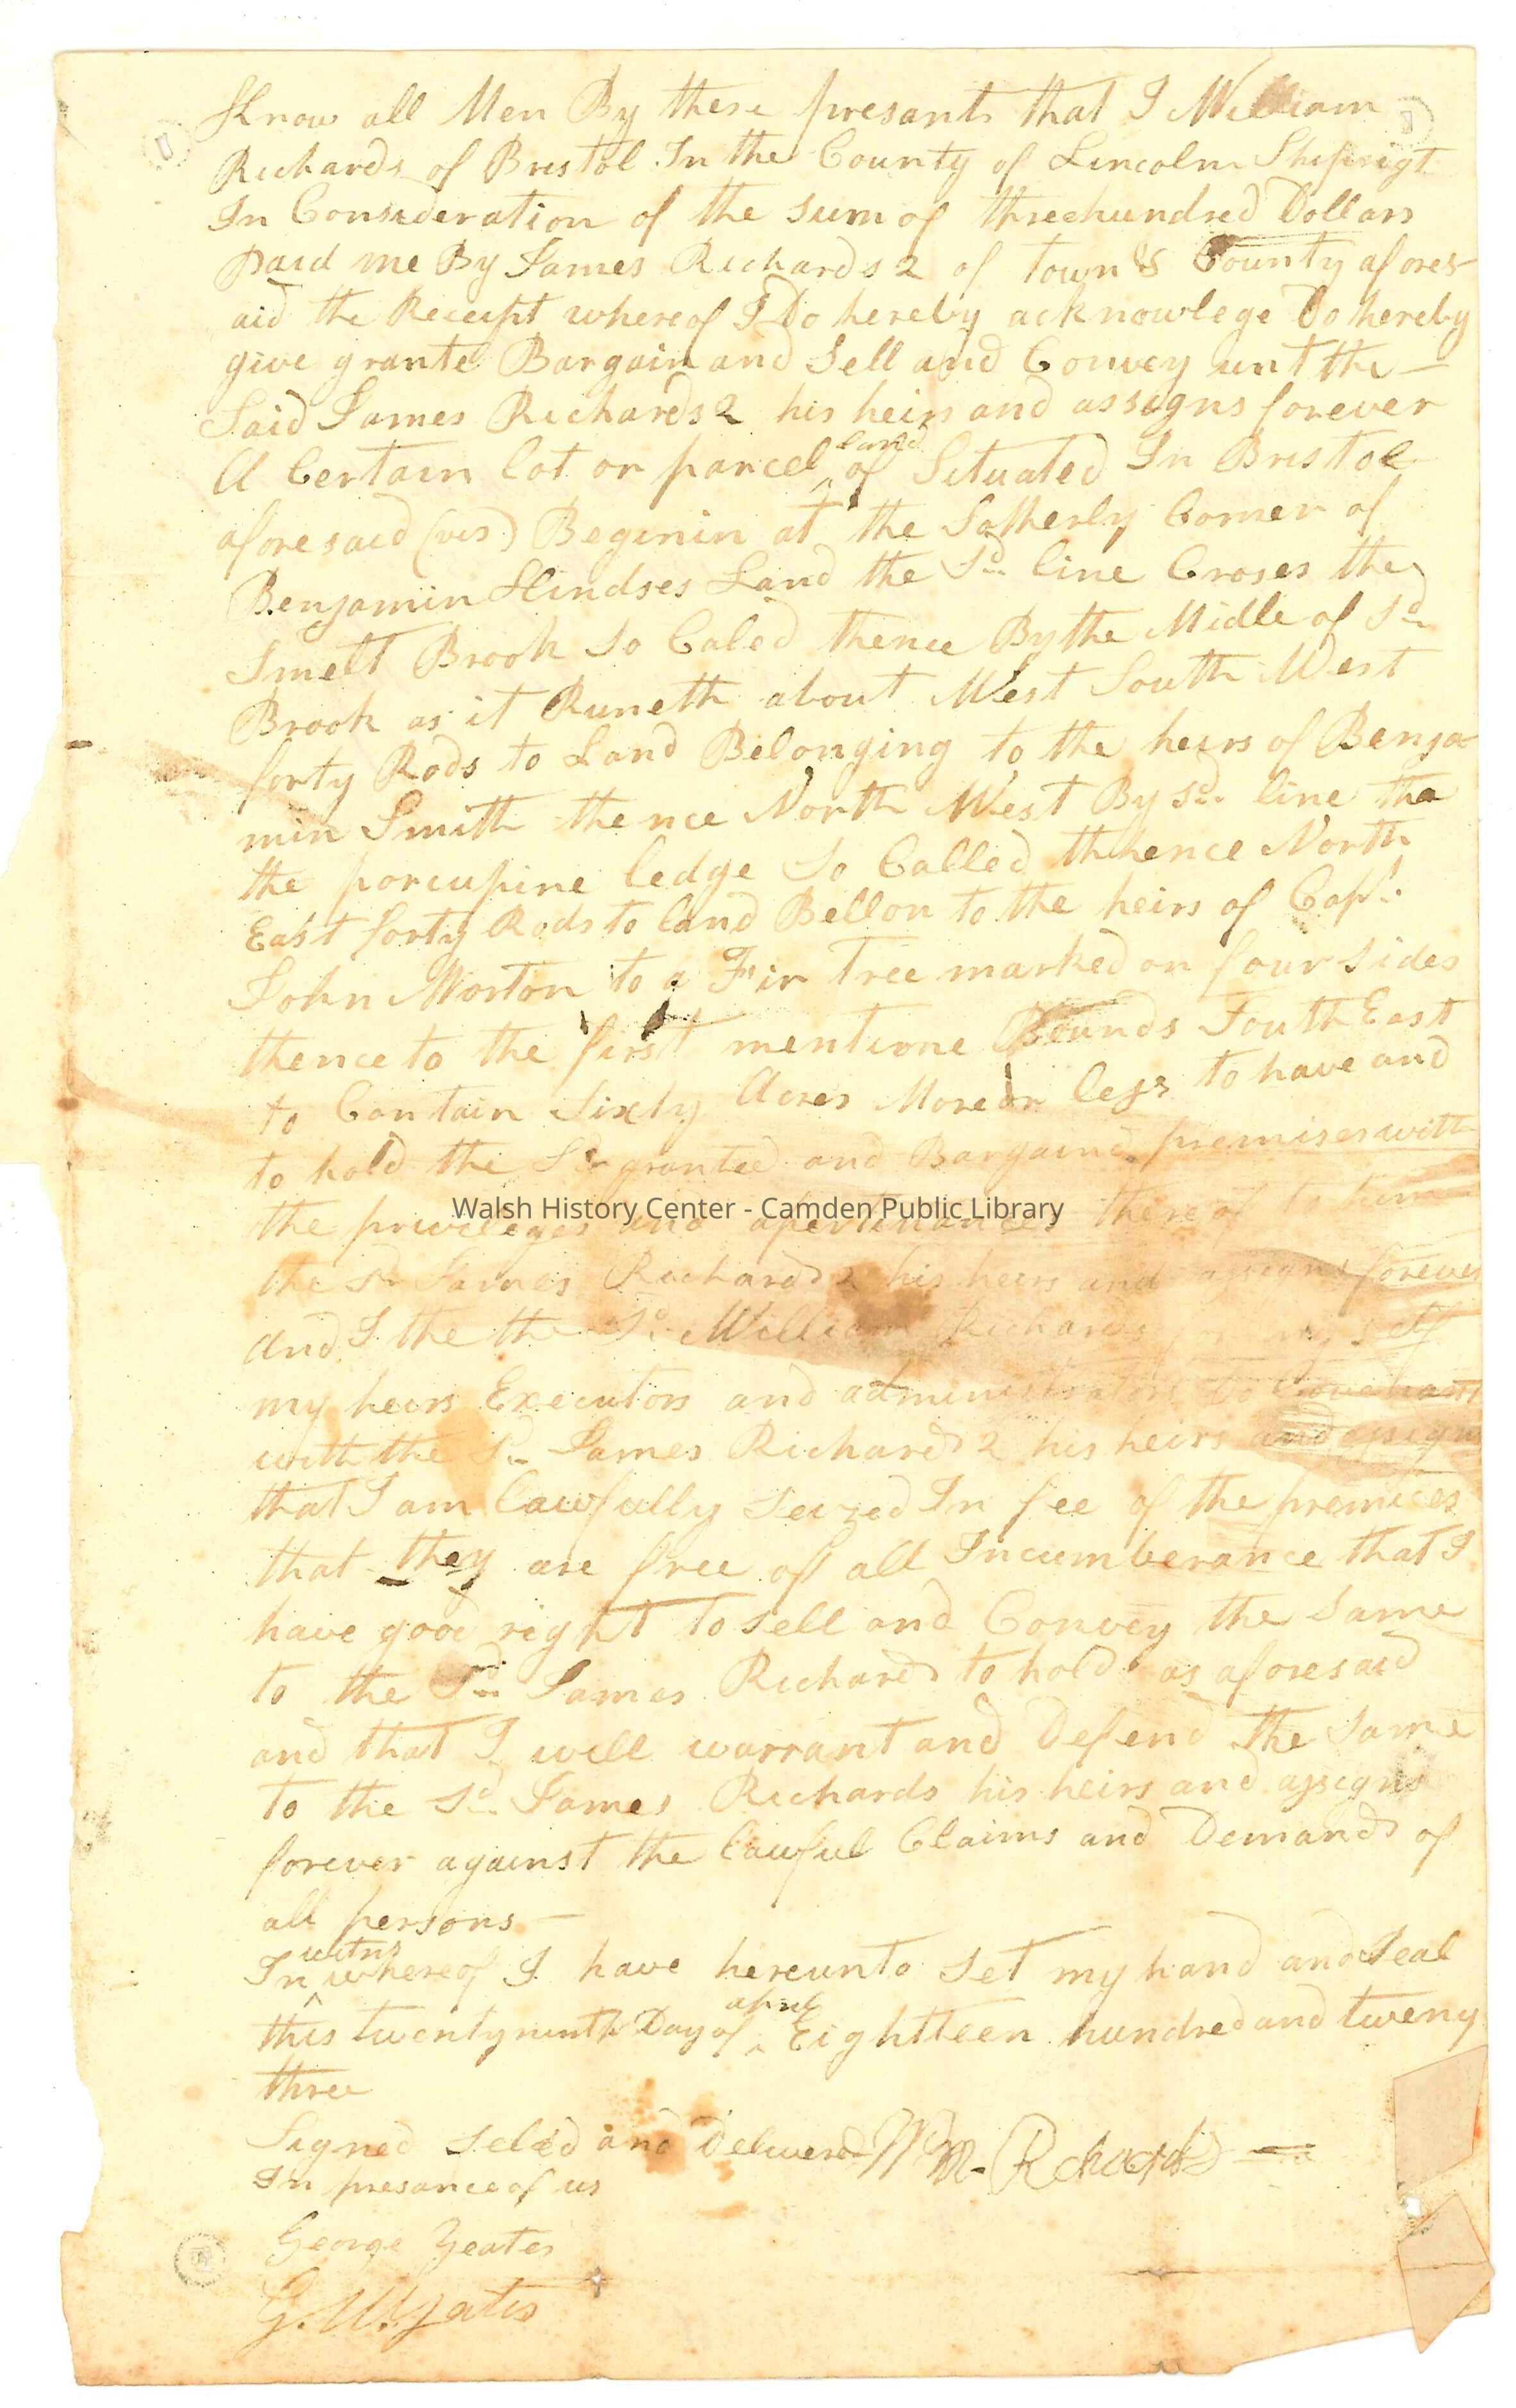 Know all Men By these presants that I William
Richards of Bristol In the County of Lincoln Shiprigt
In Consideration of the sum of threehundred Dollars
paid me By James Richards 2 of town & County afores-
aid the Receipt whereof I Do hereby acknowlege Do hereby
give grante Bargain and Sell and Convey unt the —
Said James Richards 2 his heirs and assigns forever
A Certain lot or parcel ^ land of Situated In Bristol
aforesaid (vis) Beginin at the Sotherly Corner of
Benjamin Hindses Land the Sd line Croses the
Smelt Brook So Caled thence By the Midle of Sd
Brook as it Runeth about West South West
forty Rods to Land Belonging to the heirs of Benja
min Smith thence North West By sd line tha
the porcupine ledge So Called thhence North
East forty Rods to land Bellon to the heirs of Capt.
John Morton to a Fir Tree marked on four sides
thence to the first mentione Bounds South East
to Contain Sixty Acres More or less to have and
to hold the Sd granted and Bargaind premises with
the privileges and apertinances thereof to him
the Sd James Richards 2 his heirs and assigns forever
And I the the Sd William Richards for my self
my heirs Executors and administrators Do Covenant
with the Sd James Richards 2 his heirs and assigns
that I am lawfully Seized In fee of the premices
that they are free of all Incumberance that I
have good right to sell and Convey the Same
to the Sd James Richards to hold as aforesaid
and that I will warrant and Defend the Same
to the Sd James Richards his heirs and assigns
forever against the lawful Claims and Demands of
all persons —
In ^ witns whereof I have hereunto Set my hand and Seal
this twentyninth Day of ^ april Eightteen hundred and tweny
three
Signed Seled and Delivered Wm. Richards —
In presance of us
George Yeates
G. W. Yates
Walsh History Center - Camden Public Library